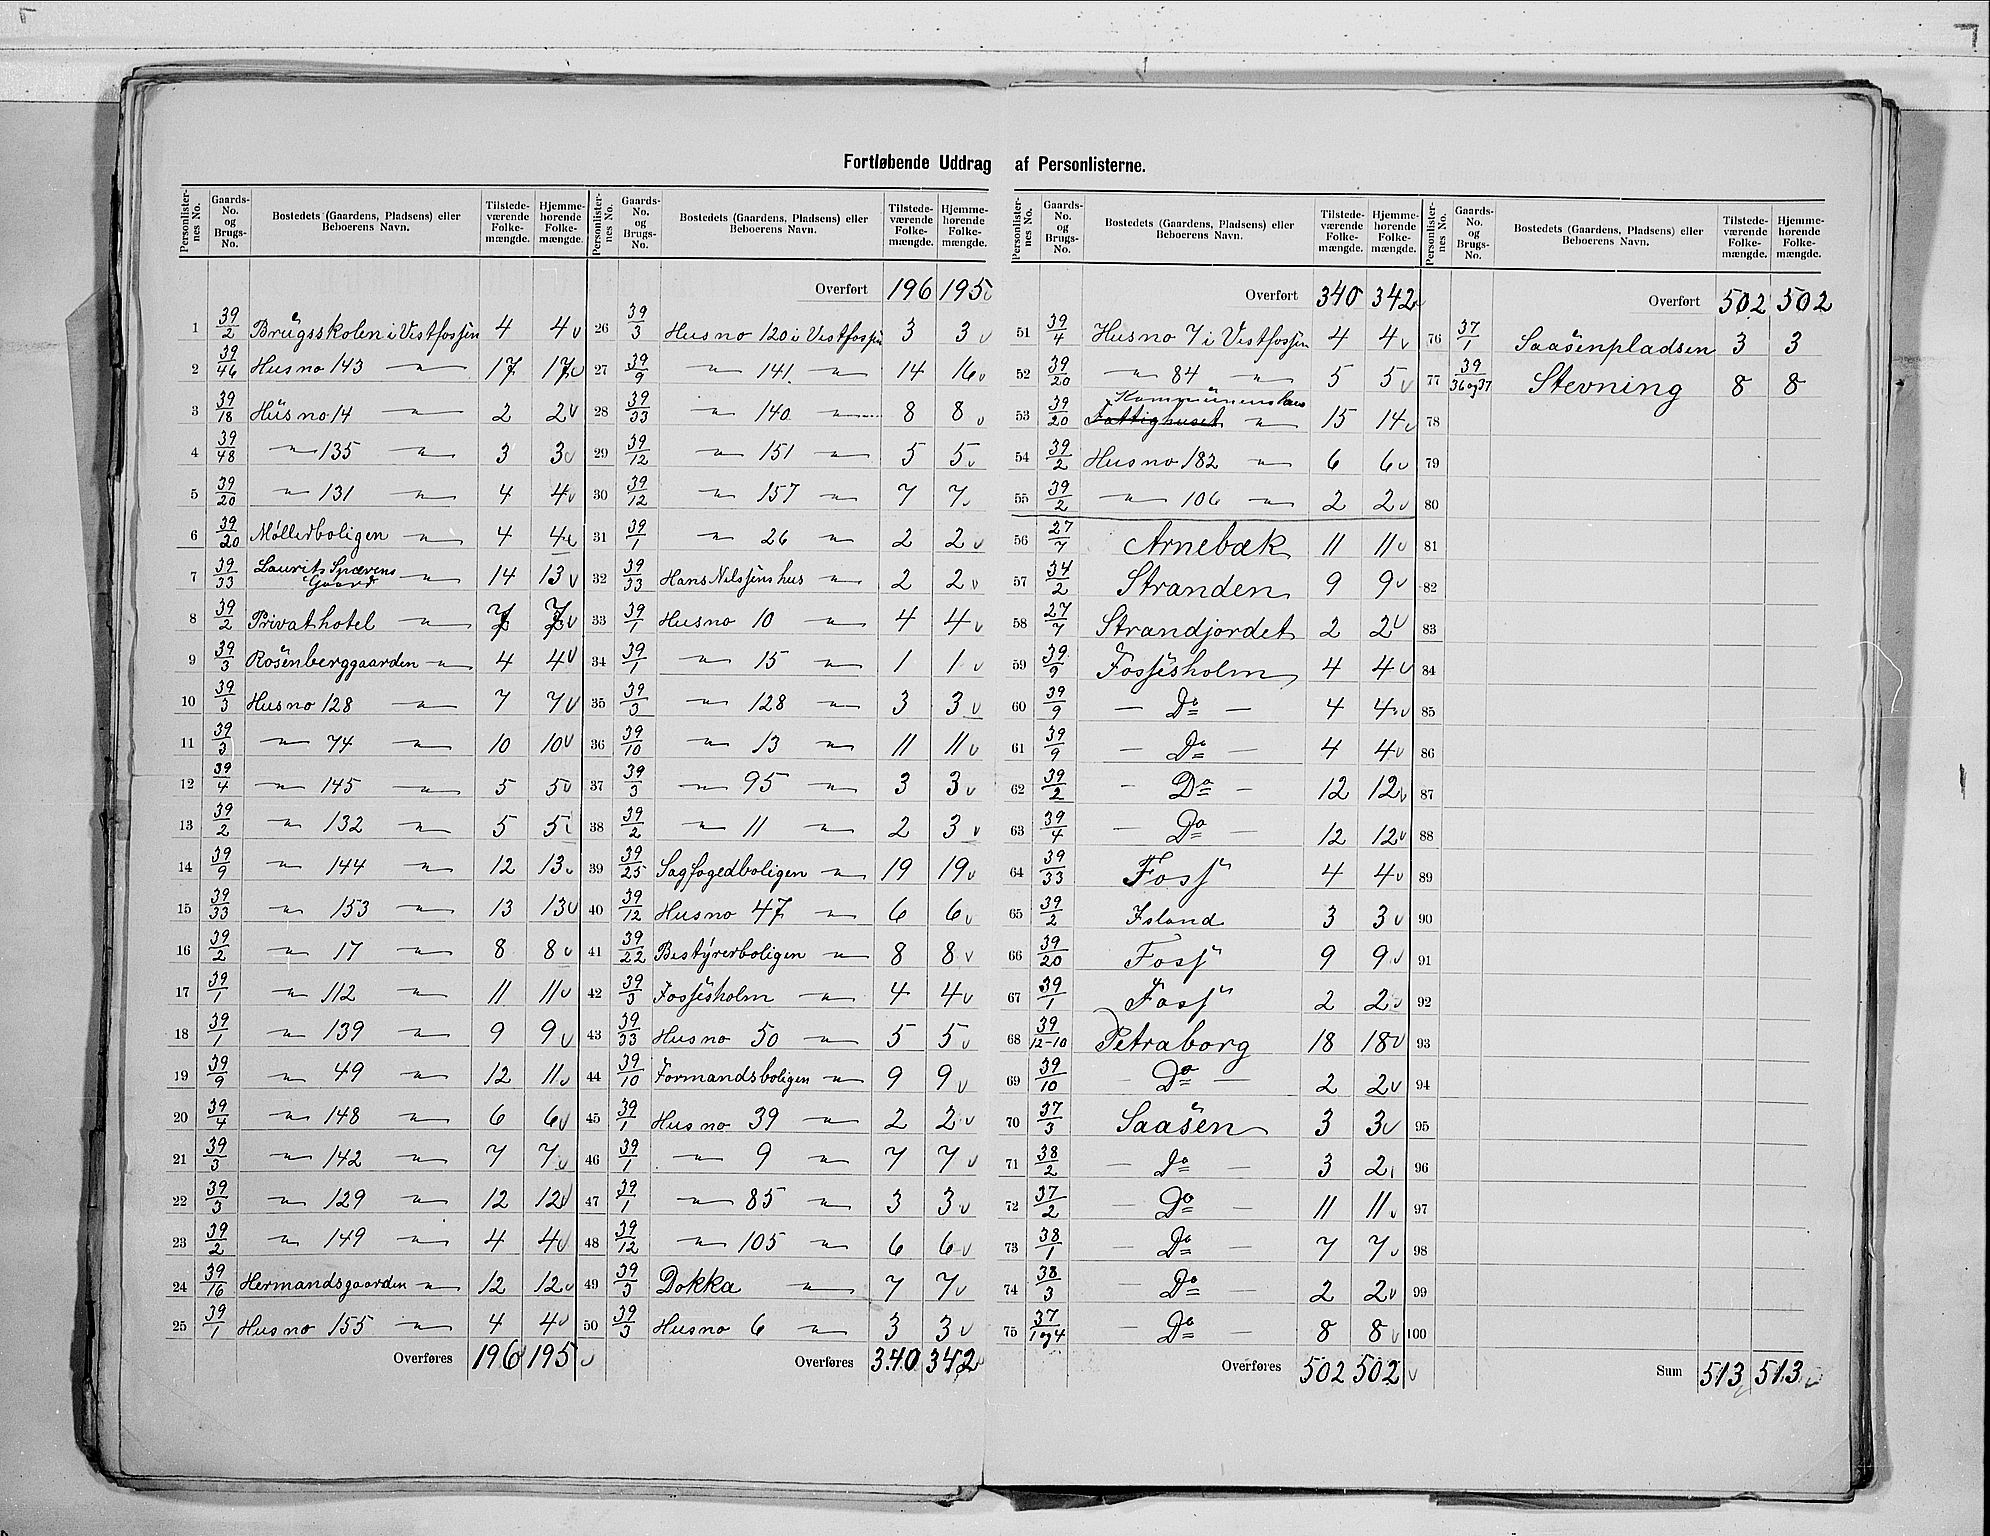 Fortløbende Uddrag af Personlisterne.
Personlister-nes No. Gaards-No. og Brugs-No. Bostedets (Gaardens, Pladsens) eller Beboerens Navn. Tilstede-værende Folke-mængde. Hjemme-hørende Folke-mængde.
1 39/2 Brugsskolen i Vestfossen 4 4
2 39/46 Hus no 143 —"— 17 17
3 39/18 Hus no 14 —"— 2 2
4 39/48 —"— 135 —"— 3 3
5 39/20 —"— 131 —"— 4 4
6 39/20 Møllerboligen —"— 4 4
7 39/33 Laurits Snærens Gaard —"— 14 13
8 39/2 Privathotel —"— 7 7
9 39/3 Rosenberggaarden —"— 4 4
10 39/3 Hus no 128 —"— 7 7
11 39/3 —"— 74 —"— 10 10
12 39/4 —"— 145 —"— 5 5
13 39/2 —"— 132 —"— 5 5
14 39/9 —"— 144 —"— 12 13
15 39/33 —"— 153 —"— 13 13
16 39/2 —"— 17 —"— 8 8
17 39/1 —"— 112 —"— 11 11
18 39/1 —"— 139 —"— 9 9
19 39/9 —"— 49 —"— 12 11
20 39/4 —"— 148 —"— 6 6
21 39/3 —"— 142 —"— 7 7
22 39/3 —"— 129 —"— 12 12
23 39/2 —"— 149 —"— 4 4
24 39/16 Hermandsgaarden —"— 12 12
25 39/1 Hus no 155 —"— 4 4
Overføres 196 195
Personlister-nes No. Gaards-No. og Brugs-No. Bostedets (Gaardens, Pladsens) eller Beboerens Navn. Tilstede-værende Folke-mængde. Hjemme-hørende Folke-mængde.
Overført 196 195
26 39/3 Hus no 120 i Vestfossen 3 3
27 39/9 —"— 141 —"— 14 16
28 39/33 —"— 140 —"— 8 8
29 39/12 —"— 151 —"— 5 5
30 39/12 —"— 157 —"— 7 7
31 39/1 —"— 26 —"— 2 2
32 39/33 Hans Nilssens hus —"— 2 2
33 39/1 Hus no 10 —"— 4 4
34 39/1 —"— 15 —"— 1 1
35 39/3 —"— 128 —"— 3 3
36 39/10 —"— 13 —"— 11 11
37 39/3 —"— 95 —"— 3 3
38 39/2 —"— 11 —"— 2 3
39 39/25 Sagfogedboligen —"— 19 19
40 39/12 Hus no 47 —"— 6 6
41 39/22 Bestyrerboligen —"— 8 8
42 39/3 Fossesholm —"— 4 4
43 39/33 Hus no 50 —"— 5 5
44 39/10 Formandsboligen —"— 9 9
45 39/1 Hus no 39 —"— 2 2
46 39/1 —"— 9 —"— 7 7
47 39/1 —"— 85 —"— 3 3
48 39/12 —"— 105 —"— 6 6
49 39/3 Dokka —"— 7 7
50 39/3 Hus no 6 —"— 3 3
Overføres 340 342
Personlister-nes No. Gaards-No. og Brugs-No. Bostedets (Gaardens, Pladsens) eller Beboerens Navn. Tilstede-værende Folke-mængde. Hjemme-hørende Folke-mængde.
Overført 340 342
51 39/4 Hus no 7 i Vestfossen 4 4
52 39/20 —"— 84 —"— 5 5
Kommunenshus
53 39/20 Fattighuset —"— 15 14
54 39/2 Hus no 182 —"— 6 6
55 39/2 —"— 106 —"— 2 2
56 27/7 Arnebæk 11 11
57 34/2 Stranden 9 9
58 27/7 Strandjordet 2 2
59 39/9 Fossesholm 4 4
60 39/9 — Do — 4 4
61 39/9 — Do — 4 4
62 39/2 — Do — 12 12
63 39/4 — Do — 12 12
64 39/33 Foss 4 4
65 39/2 Island 3 3
66 39/20 Foss 9 9
67 39/1 Foss 2 2
68 39/12-10 Petraborg 18 18
69 39/10 — Do — 2 2
70 37/3 Saasen 3 3
71 38/2 — Do — 3 2
72 37/2 — Do — 11 11
73 38/1 — Do — 7 7
74 38/3 — Do — 2 2
75 37/1 og 4 — Do — 8 8
Overføres 502 502
Personlister-nes No. Gaards-No. og Brugs-No. Bostedets (Gaardens, Pladsens) eller Beboerens Navn. Tilstede-værende Folke-mængde. Hjemme-hørende Folke-mængde.
Overført 502 502
76 37/1 Saasenpladsen 3 3
77 39/36 og 37 Stevning 8 8
78
79
80
81
82
83
84
85
86
87
88
89
90
91
92
93
94
95
96
97
98
99
100
Sum 513 513